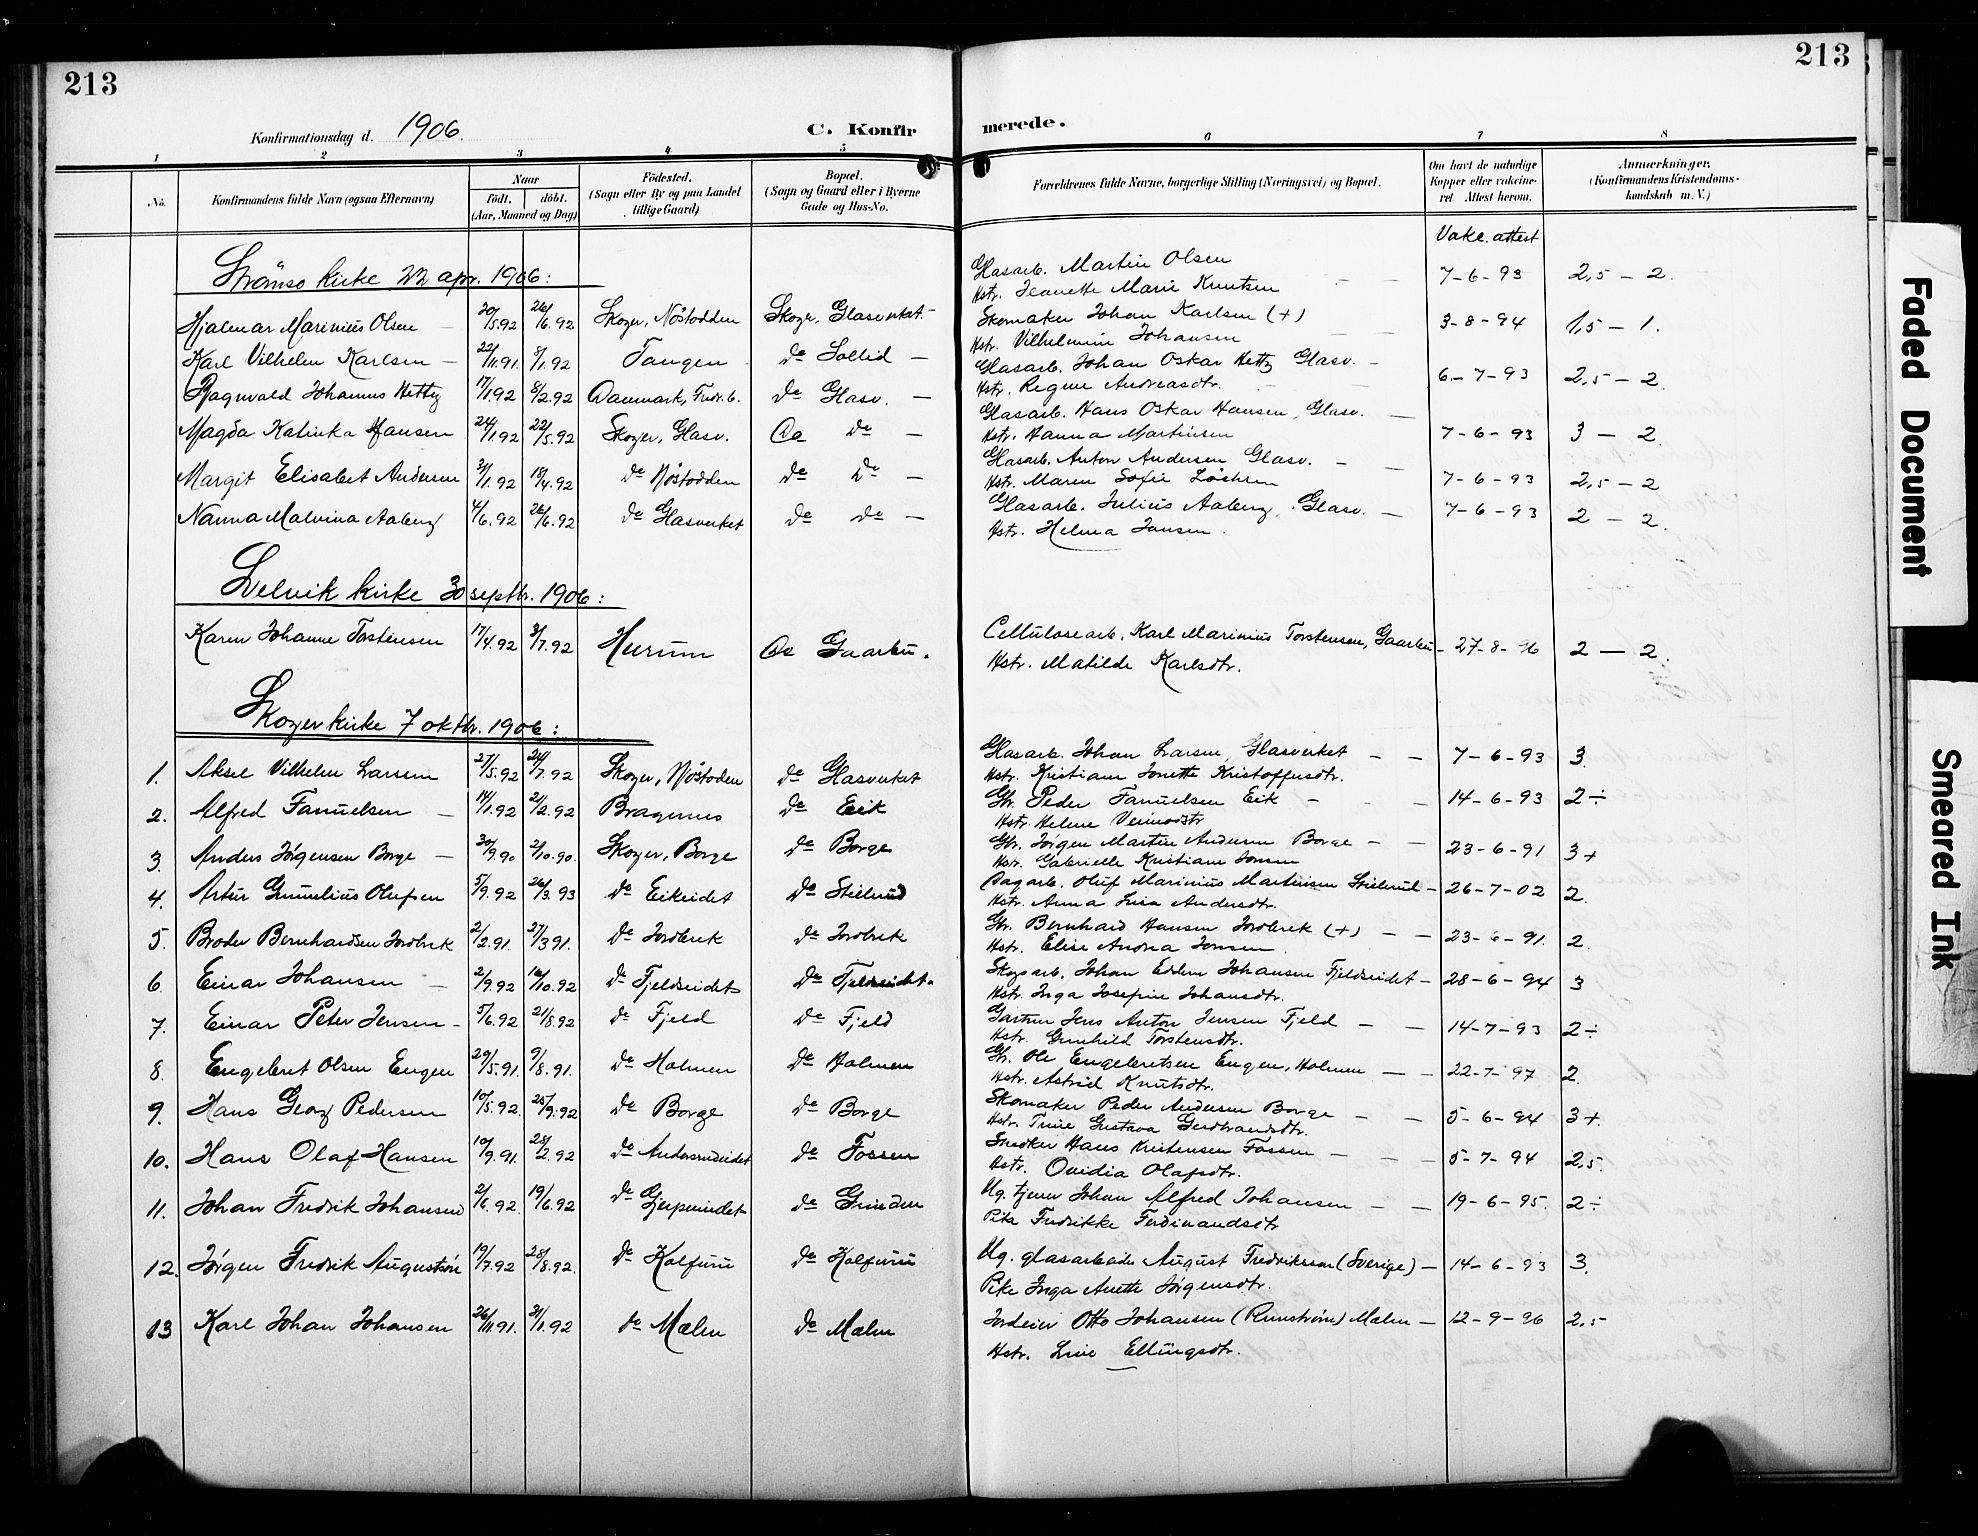 213
213
Konfirmationsdag d. 1906.
C. Konfirmerede.
1 2 3 4 5 6 7 8
No.
Konfirmandens fulde Navn (ogsaa Efternavn)
Naar
födt. döbt.
(Aar, Maaned og Dag)
Födested.
(Sogn eller By og paa Landet
tillige Gaard)
Bopæl.
(Sogn og Gaard eller i Byerne
Gade og Hus-No.
Forældrenes fulde Navne, borgerlige Stilling (Næringsvei) og Bopæl.
Om havt de naturlige
Kopper eller vakcine-
ret. Attest herom.
Anmærkninger.
(Konfirmandens Kristendoms-
kundskab m. V.)
Vakc. attest
Strömsö kirke 22 apr. 1906:
Hjalmar Marinius Olsen 30/5.92 26/6.92 Skoger, Nöstodden Skoger, Glasverket. Glasarb. Martin Olsen 7-6-93 2,5 – 2.
Hstr. Jeanette Marie Knutsen
Karl Vilhelm Karlsen 22/11.91 8/1.92 Tangen do Sollid Skomaker Johan Karlsen (+) 3-8-94 1,5 – 1.
Hstr. Vilhelmine Johansen
Ragnvald Johannes Hettig 17/1.92 8/2.92 Danmark, Fredr.b. do Glasv. Glasarb. Johan Oskar Hettig Glasv. 6-7-93 2,5 – 2
Hstr. Regine Andreasdtr.
Magda Katinka Hansen 24/1.92 22/5.92 Skoger, Glasv. do do Glasarb. Hans Oskar Hansen, Glasv. 7-6-93 3 – 2.
Hstr. Hanna Martinsen
Margit Elisabet Andersen 31/1.92 18/4.92 do Nöstodden do do Glasarb. Anton Andersen Glasv. 7-6-93 2,5 – 2
Hstr. Maren Sofie
Nanna Malvina Aaberg 4/6.92 26/6.92 do Glasverket do do Glasarb. Julius Aaberg, Glasv. 7-6-93 2 – 2.
Hstr. Helma Jansen.
Svelvik kirke 30 septbr. 1906:
Karen Johanne Torstensen 17/4.92 3/7.92 Hurum do Gaarbu. Cellulosearb. Karl Marinius Torstensen, Gaarbu 27-8-96 2 – 2.
Hstr. Matilde Karlsdtr.
Skoger kirke 7 oktbr. 1906:
1. Aksel Vilhelm Larsen 27/5.92 24/7.92 Skoger, Nöstodden do Glasverket Glasarb. Johan Larsen, Glasverket 7-6-93 3.
Hstr. Kristiane Jonette Kristoffersdtr.
2. Alfred Fanuelsen 14/1.92 21/2.92 Bragernes do Eik Gbr. Peder Fanuelsen Eik 14-6-93 2÷
Hstr. Helene
3. Anders Jörgensen Borge 30/9.90 2/10.90. Skoger, Borge do Borge Gbr. Jörgen Martin Andersen Borge 23-6-91 3+
Hstr. Gabrielle Kristiane Jonsen
4. Artur Olufsen 5/9.92 26/3.93 do Eikeidet do Stielrud Dagarb. Oluf Marinius Martinsen Stielrud 26-7-02 2.
Hstr. Anna Lina Andersdtr.
5. Broder Bernhardsen Jordbrek 2/2.91. 27/3 91. do Jordbrek do Jordbrek Gbr. Bernhard Hansen Jordbrek (+) 23-6-91. 2.
Hstr. Elise Andrea Jonsen
6. Einar Johansen 2/9.92 16/10.92 do Fjeldseidet do Fjeldseidet Skogsarb. Johan Edvin Johansen Fjeldseidet 28-6-94 3
Hstr. Inga Josefine Johansdtr.
7. Einar Peter Jensen 5/6.92 21/8.92 do Fjeld do Fjeld Gartner Jens Anton Jensen Fjeld 14-7-93 2÷
Hstr. Gunhild Torstensdtr.
8. Engebret Olsen Engen 29/5.91. 9/8.91. do Holmen do Holmen Gbr. Ole Engebretsen Engen, Holmen 22-7-97 2.
Hstr. Astrid Knutsdtr.
9. Hans Georg Pedersen 10/5.92. 25/9.92 do Borge do Borge Skomaker Peder Andersen Borge 5-6-94 3+.
Hstr. Trine Gustava Gudbrandsdtr.
10. Hans Olaf Hansen 10/9.91. 28/2.92 do Andersrudeidet do Fossen Snedker Hans Kristensen Fossen 5-7-94 2,5.
Hstr. Ovidia Olafsdtr.
11. Johan Fredrik Johansen 2/6.92. 19/6.92 do do Grinden Ug. tjener Johan Alfred Johansen 19-6-95. 2÷
Pike Fredrikke Ferdinandsdtr
12. Jörgen Fredrik Augustsön 19/7.92 28/8.92. do Kolfuru do Kolfuru Ug. glasarbeider August Fredriksson (Sverige) 14-6-93 3.
Pike Inga Anette Jörgensdtr.
13 Karl Johan Johansen 26/11.91. 31/1.92 do Mælen do Mælen Jordeier Otto Johansen (Runström) Mælen 12-9-96 2,5
Hstr. Line Ellingsdtr.
Faded Document
Smeared Ink